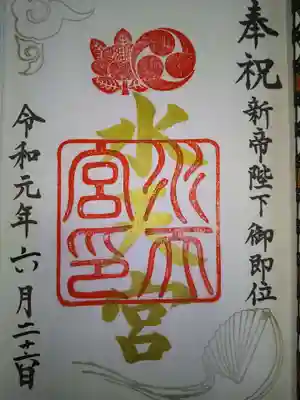 奉祝
新帝陛下御即位
水天宮
水天
宮印
令和元年六月二十六日